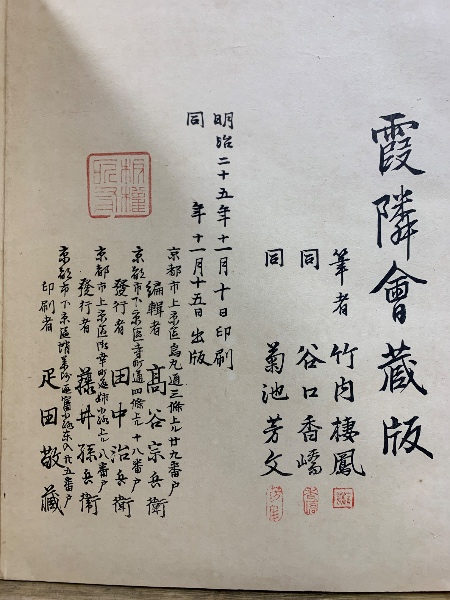 霞隣會蔵版
筆者 竹内棲鳳
同 谷口香嶠
同 菊池芳文
明治二十五年十一月十日印刷
同 年十一月十五日出版
京都市上京區烏丸通三條上ル廿九番戸
編輯者 高谷宗兵衛
京都市下京區寺町通四條上ル十八番戸
發行者 田中治兵衛
京都市上京區御幸町通姉小路上ル八番戸
發行者 藤井孫兵衛
京都市下京區
印刷者 疋田敬蔵
版權所有